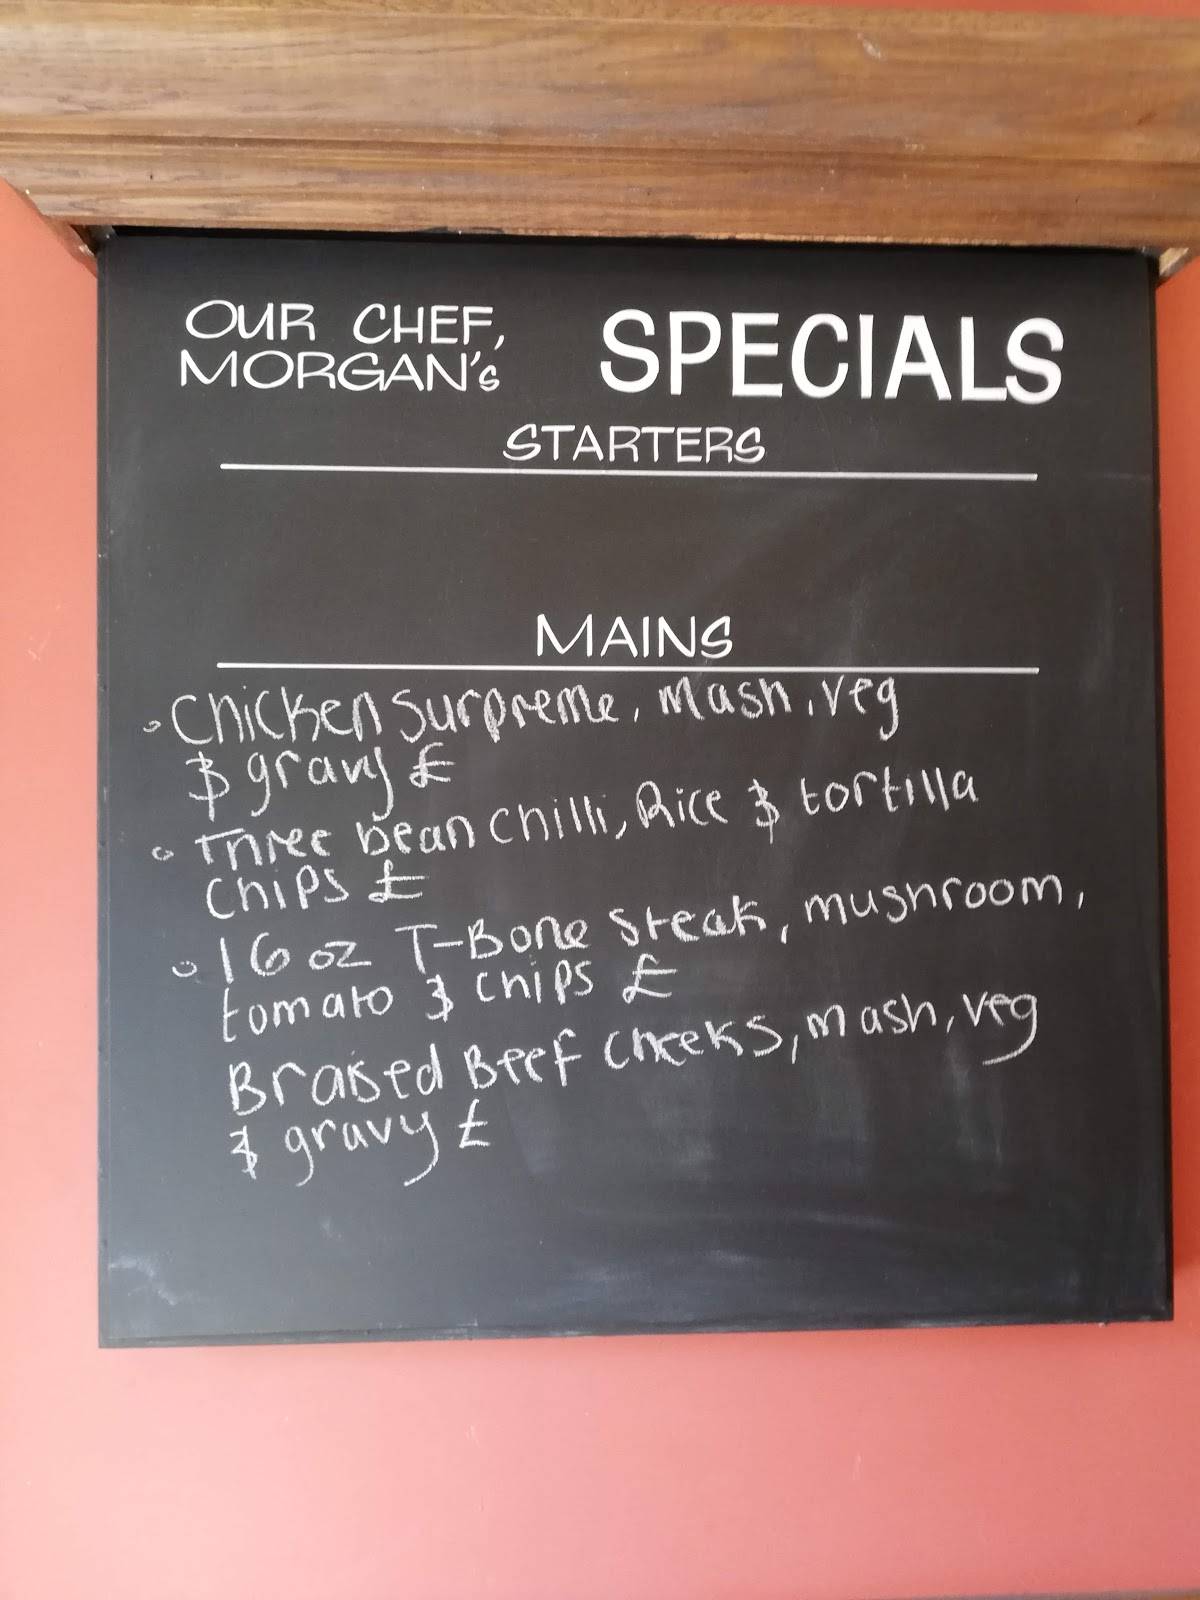 OUR CHEF,
MORGAN's SPECIALS
STARTERS
MAINS
Chicken Surpreme, Mash, veg
& gravy £
Three bean chilli, Rice & tortilla
Chips £
16 oz T-Bone Steak, mushroom,
tomato & chips £
Braised Beef Cheeks, mash, veg
& gravy £